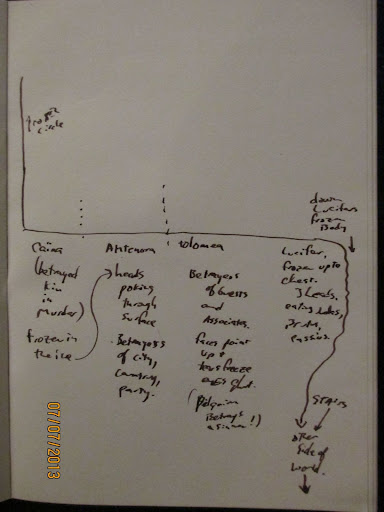 circle
down
Lucifers
frozen
Body
Caina
(betrayed
kin
in
murder)
frozen in
the ice
Antenora
heads
poking
through
surface
Betrayers
of city,
country,
party.
tolomea
Betrayers
of Guests
and
Associates.
faces point
up &
tears freeze
eyes shut.
(Pilgrim
Betrays
a sinner!)
Lucifer,
frozen up to
chest.
3 heads,
eating Judas,
Brutus,
Cassius.
Stairs
other
side of
world.
07/07/2013